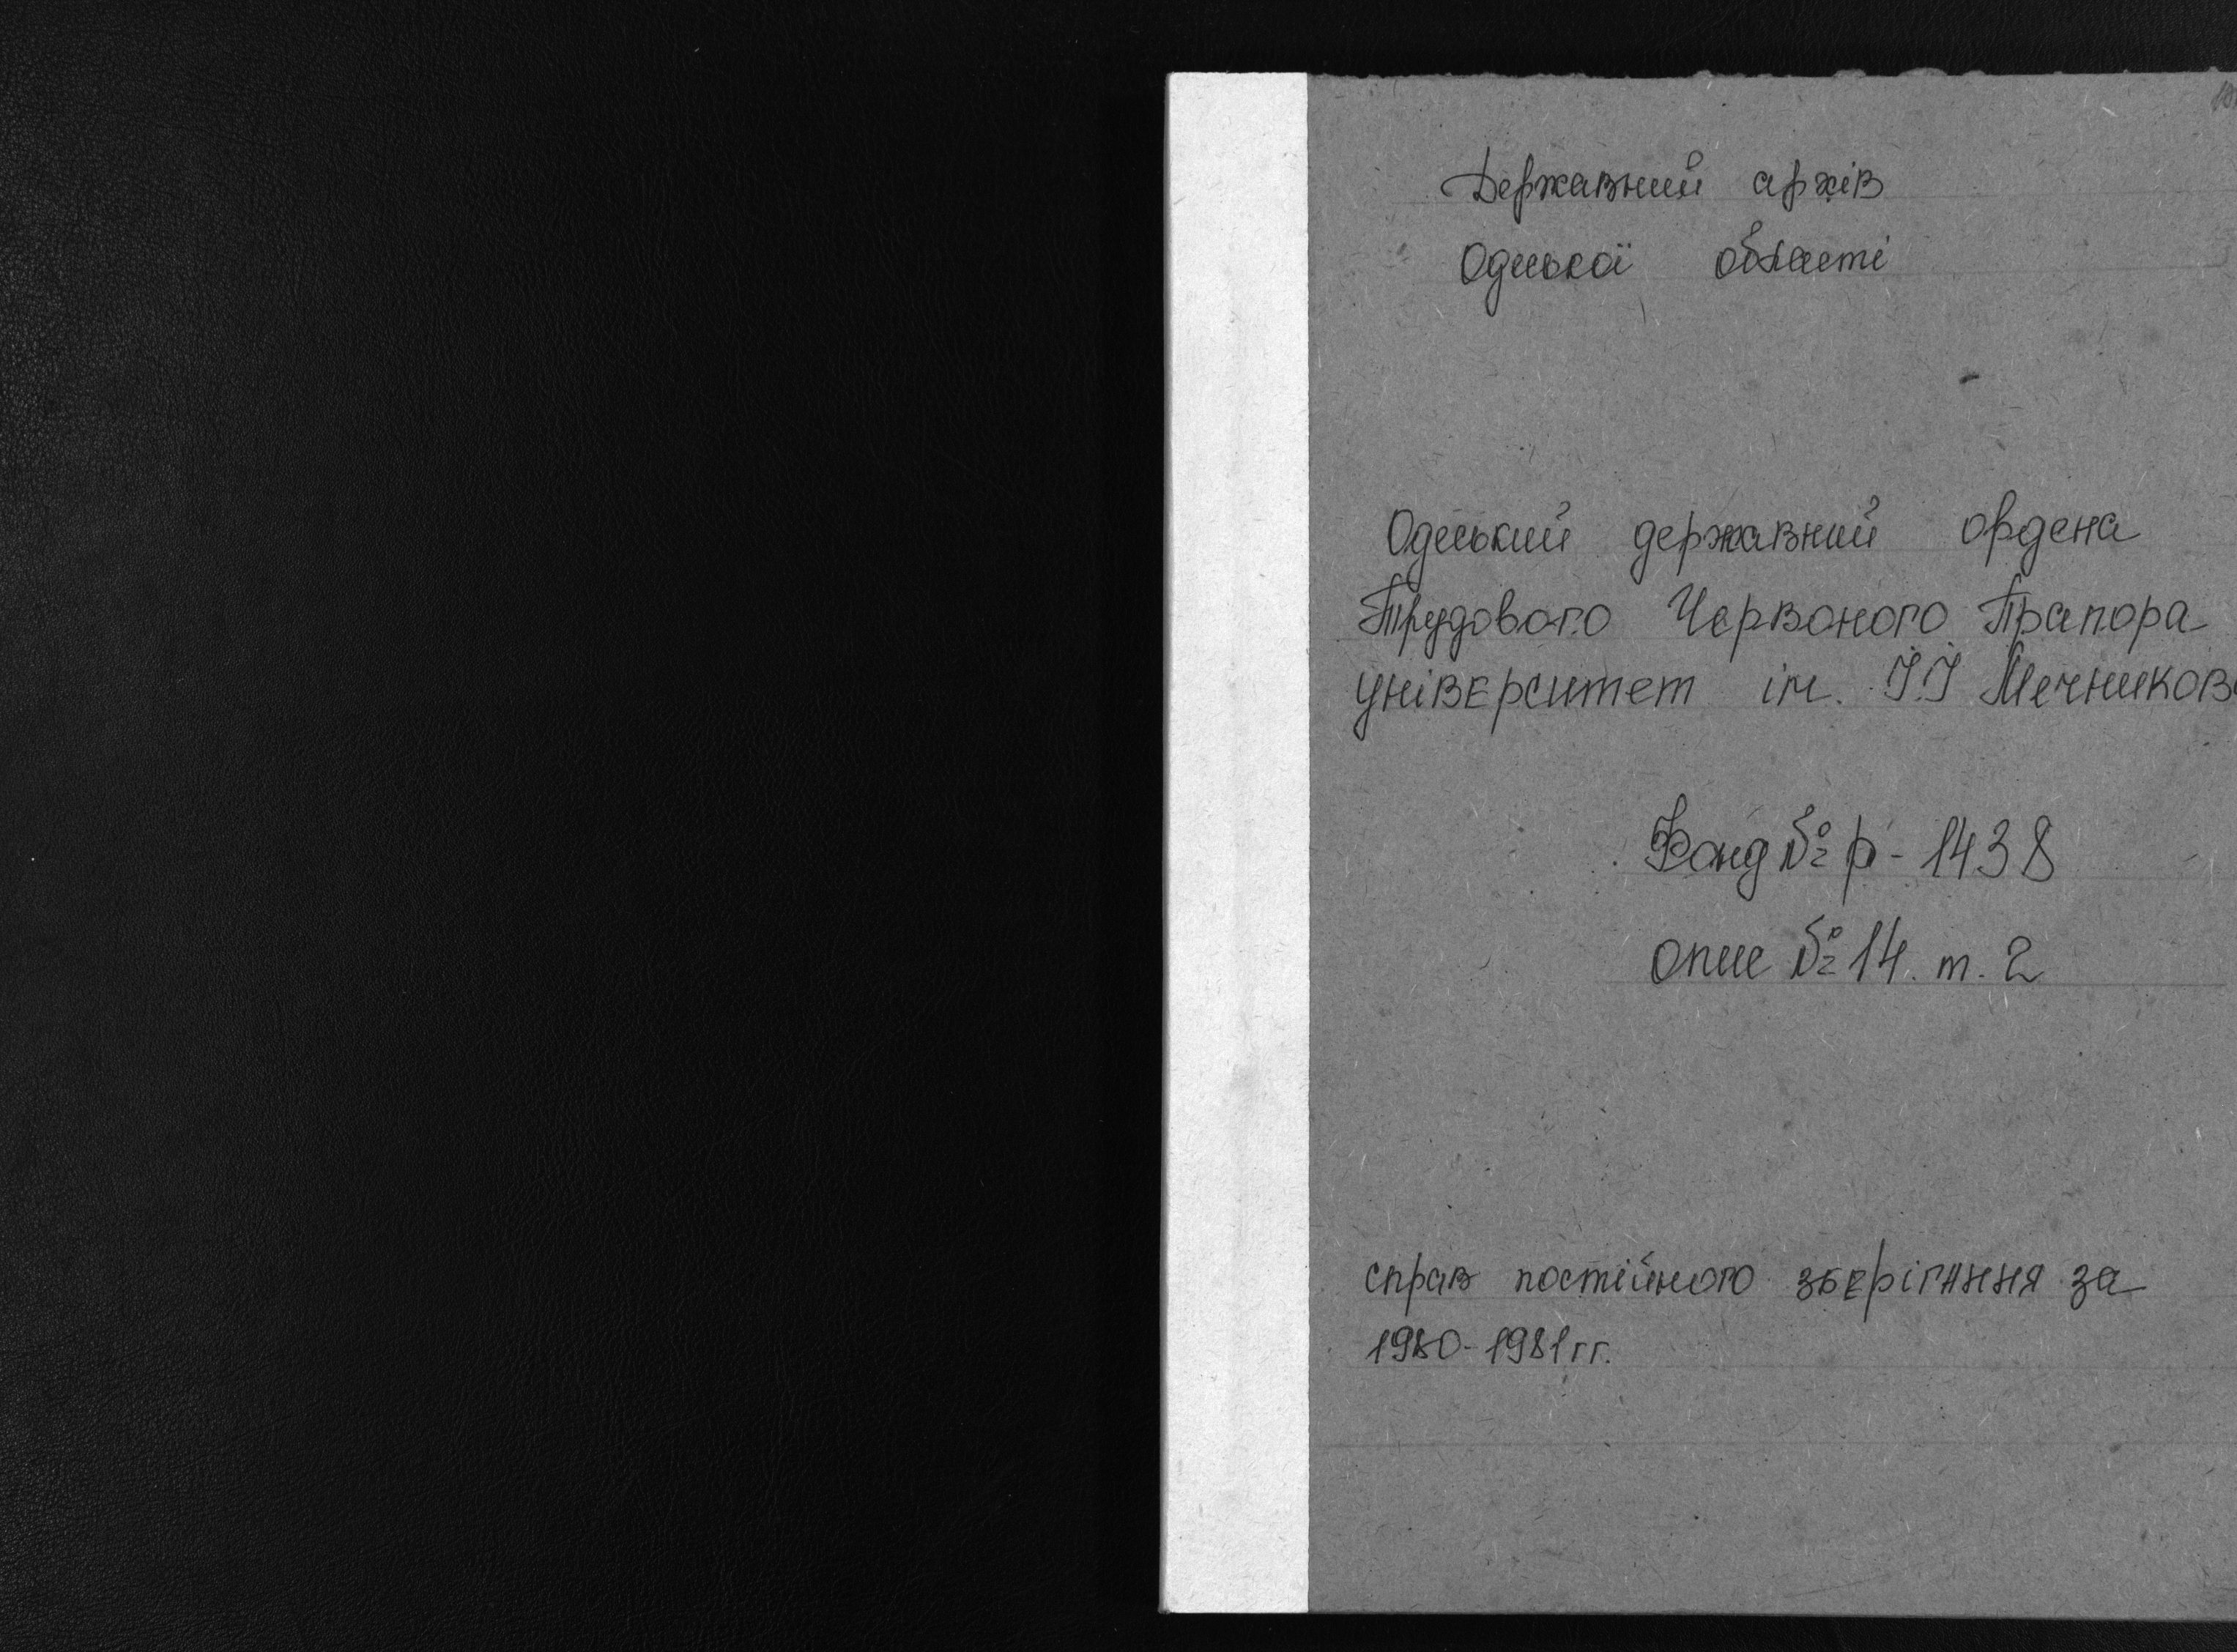 Державний архів
Одеської області
Одеський державний ордена
Трудового Червоного Прапора
університет ім. І.І Мечникова
Фонд № р - 1438
опис № 14. т. 2
справ постійного зберігання за
1980-1981гг.